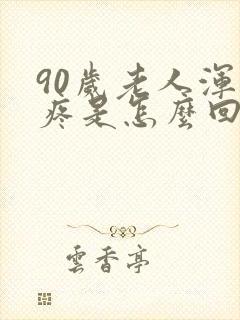 90歲老人渾
疼是怎麼回
雲香亭